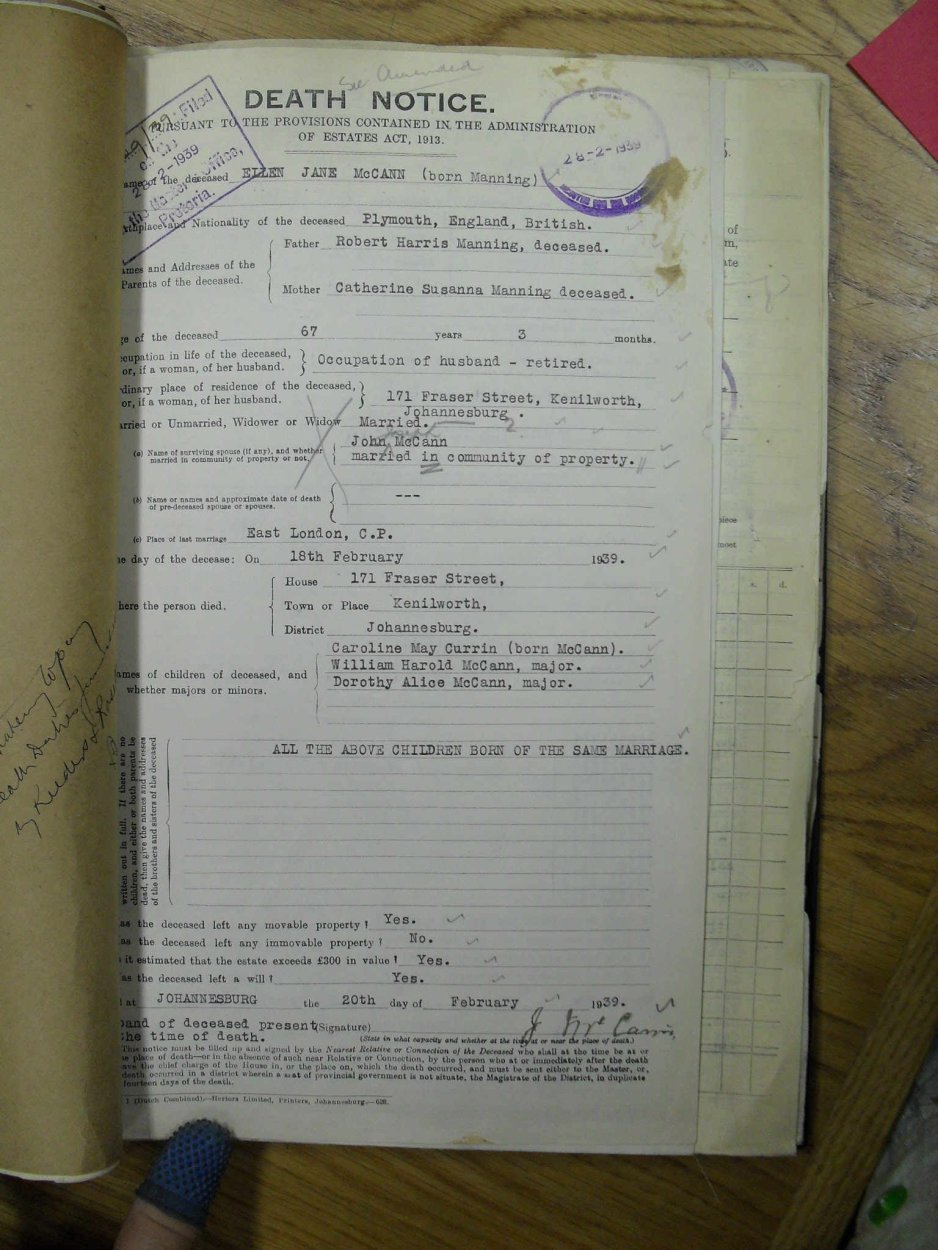 See Amended
DEATH NOTICE.
PURSUANT TO THE PROVISIONS CONTAINED IN THE ADMINISTRATION
OF ESTATES ACT, 1913.
Filed
on the
28-2-1939
the Master's Office,
Pretoria.
28-2-1939
ame of the deceased ELLEN JANE McCANN (born Manning)
thplace and Nationality of the deceased Plymouth, England, British.
ames and Addresses of the
Parents of the deceased.
Father Robert Harris Manning, deceased.
Mother Catherine Susanna Manning deceased.
ge of the deceased 67 years 3 months.
ccupation in life of the deceased,
or, if a woman, of her husband.
Occupation of husband - retired.
dinary place of residence of the deceased,
or, if a woman, of her husband.
171 Fraser Street, Kenilworth,
Johannesburg.
arried or Unmarried, Widower or Widow Married.
(a) Name of surviving spouse (if any), and whether
married in community of property or not.
John McCann
married in community of property.
(b) Name or names and approximate date of death
of pre-deceased spouse or spouses.
---
(c) Place of last marriage East London, C.P.
he day of the decease: On 18th February 1939.
here the person died.
House 171 Fraser Street,
Town or Place Kenilworth,
District Johannesburg.
ames of children of deceased, and
whether majors or minors.
Caroline May Currin (born McCann).
William Harold McCann, major.
Dorothy Alice McCann, major.
written out in full. If there are no
children, and either or both parents be
dead, then give the names and addresses
of the brothers and sisters of the deceased
ALL THE ABOVE CHILDREN BORN OF THE SAME MARRIAGE.
as the deceased left any movable property? Yes.
as the deceased left any immovable property? No.
it estimated that the estate exceeds £300 in value? Yes.
as the deceased left a will? Yes.
at JOHANNESBURG the 20th day of February 1939.
band of deceased present (Signature) J McCann
the time of death. (State in what capacity and whether at the time at or near the place of death.)
This notice must be filled up and signed by the Nearest Relative or Connection of the Deceased who shall at the time be at or
e place of death—or in the absence of such near Relative or Connection, by the person who at or immediately after the death
ave the chief charge of the House in, or the place on, which the death occurred, and must be sent either to the Master, or,
death occurred in a district wherein a seat of provincial government is not situate, the Magistrate of the District, in duplicate
fourteen days of the death.
1 (Dutch Combined).—Hortors Limited, Printers, Johannesburg.—628.
of
m,
ate
piece
most
s. d.